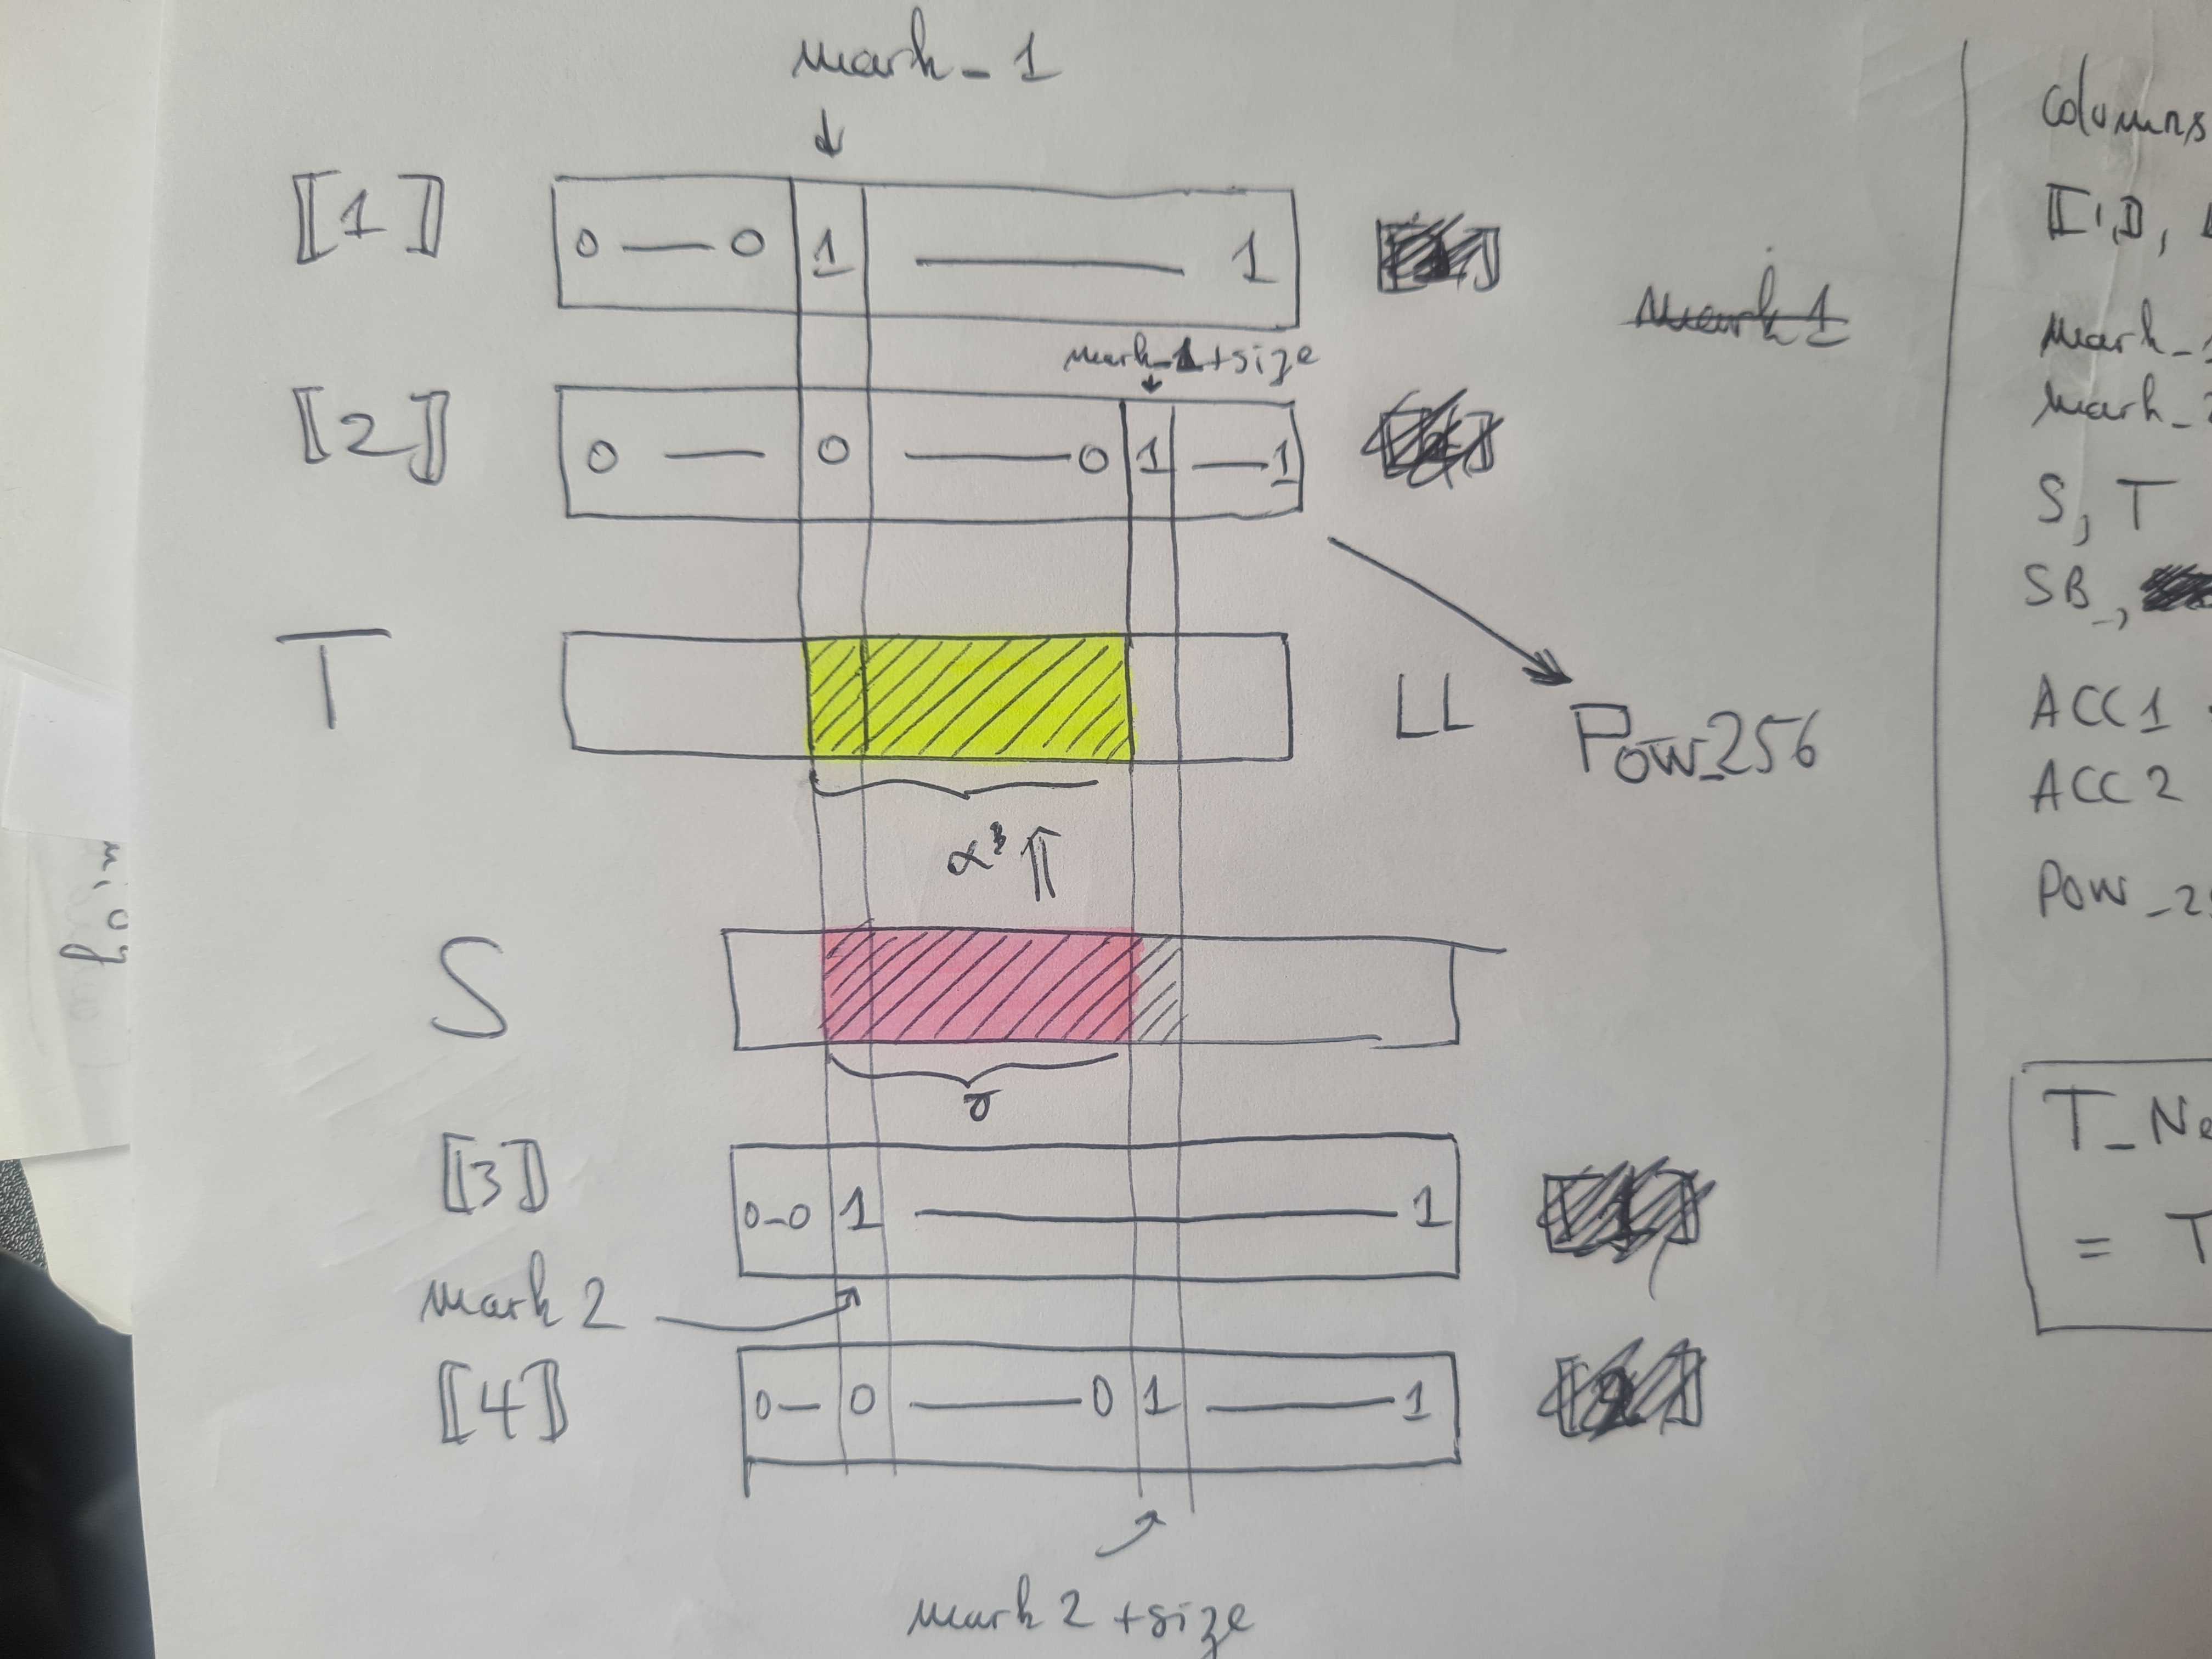 mark_1
⟦1⟧ 0 — 0 1 — 1
mark1
mark_1+size
⟦2⟧ 0 — 0 — 0 1 — 1
T LL Pow_256
α
S
⟦3⟧ 0_0 1 — 1
mark 2
⟦4⟧ 0— 0 — 0 1 — 1
mark 2 +size
columns
⟦1⟧,
mark_1
mark_2
S, T
SB_,
ACC1
ACC2
POW_2
T_Ne
= T